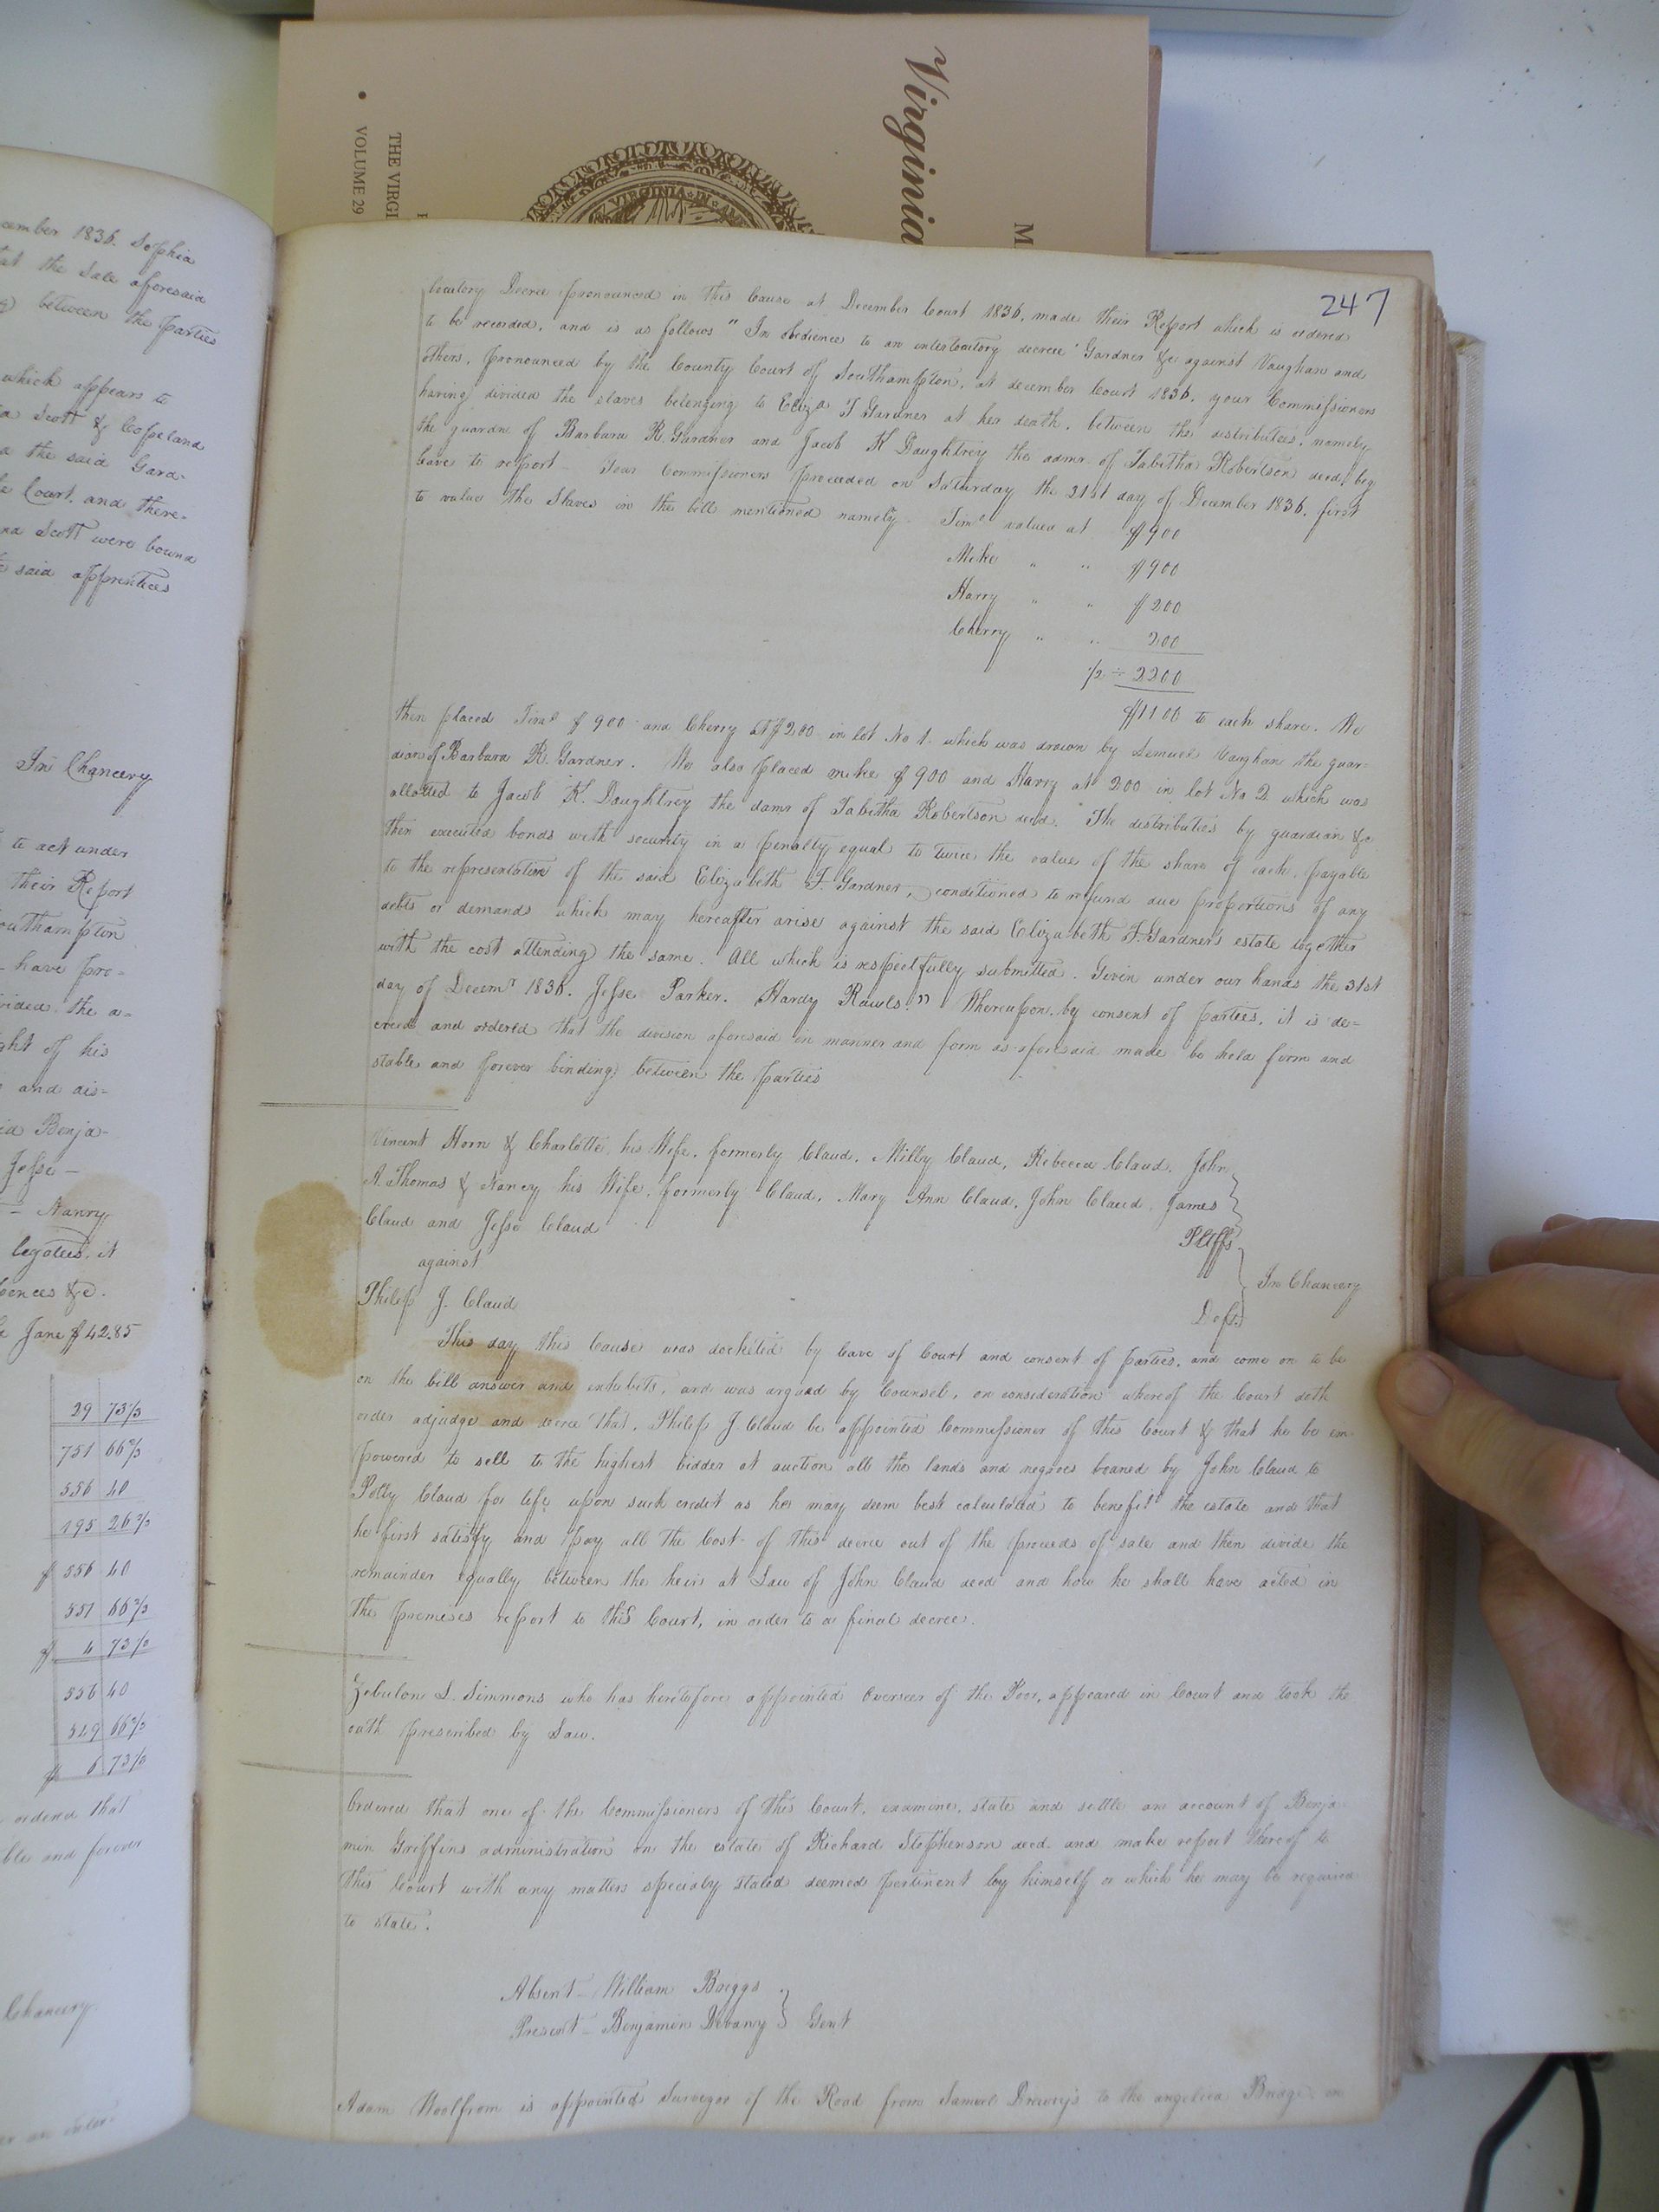 Virginia
M
THE VIRGI
VOLUME 29
VIRGINIA
cember 1836. Sophia
at the Sale aforesaid
between the parties
which appears to
Scott & Copeland
a the said Gard-
Court, and there-
Scott were bound
said apprentices
In Chancery
to act under
their Report
outhampton
have pro-
vided the a-
ght of his
and dis-
Benja-
Jesse —
Nancy
legatees, it
pences &c.
Jane $42.85
29 73⅓
751 66⅔
556 40
195 26⅔
$ 556 40
551 66⅔
$ 4 73⅓
556 40
549 66⅔
$ 6 73⅓
ordered that
ble and forever
Chancery
247
locutory Decree pronounced in this Cause at December Court 1836, made their Report which is ordered
to be recorded, and is as follows "In obedience to an interlocutory decree Gardner &c against Vaughan and
others, pronounced by the County Court of Southampton, at december Court 1836, your Commissioners
having divided the slaves belonging to Eliza T Gardner at her death, between the distributees, namely
the guardn of Barbara R. Gardner and Jacob K Daughtrey the admr of Tabitha Robertson decd, beg
leave to report — Your Commissioners proceeded on Saturday the 31st day of December 1836, first
to value the Slaves in the bill mentioned namely — Tim valued at $900
Mike " " $900
Harry " " $200
Cherry " " 200
/2 ÷ 2200
$1100 to each share. We
then placed Tim $900 and Cherry at $200 in lot No 1. which was drawn by Lemuel Vaughan the guar-
dian of Barbara R. Gardner. We also placed mike $900 and Harry at 200 in lot No 2 which was
allotted to Jacob K. Daughtrey the damr of Tabitha Robertson decd. The distributees by guardian &c
then executed bonds with security in a penalty equal to twice the value of the share of each, payable
to the representative of the said Elizabeth T. Gardner, conditioned to refund due proportions of any
debts or demands which may hereafter arise against the said Elizabeth T. Gardner's estate together
with the cost attending the same. All which is respectfully submitted. Given under our hands the 31st
day of Decemr 1836. Jesse Parker. Hardy Rawls." Whereupon, by consent of parties, it is de-
creed and ordered that the division aforesaid in manner and form as aforesaid made be held firm and
stable and forever binding between the parties
Vincent Horn & Charlotte his Wife, formerly Claud, Milly Claud, Rebecca Claud, John
A. Thomas & Nancy his Wife, formerly Claud, Mary Ann Claud, John Claud, James
Claud and Jesse Claud
Pltffs
against
In Chancery
Philip J. Claud
Deft.
This day this Cause was docketed by leave of Court and consent of parties, and come on to be
on the bill answer and exhibits, and was argued by Counsel, on consideration whereof the Court doth
order adjudge and decree that, Philip J Claud be appointed Commissioner of this Court & that he be em
powered to sell to the highest bidder at auction all the lands and negroes loaned by John Claud to
Polly Claud for life, upon such credit as he may deem best calculated to benefit the estate and that
he first satisfy and pay all the Cost of this decree out of the proceeds of sale and then divide the
remainder equally between the heirs at Law of John Claud decd and how he shall have acted in
the premises report to this Court, in order to a final decree.
Zebulon L. Simmons who has heretofore appointed Overseer of the Poor, appeared in Court and took the
oath prescribed by Law.
Ordered that one of the Commissioners of this Court, examine, state and settle an account of Benja-
min Griffins administration on the estate of Richard Stephenson decd. and make report thereof to
this Court with any matters specialy stated deemed pertinent by himself or which he may be required
to state.
Absent — William Briggs
Present — Benjamin Devany } Gent
Adam Woolfrom is appointed Surveyor of the Road from Samuel Drewry's to the angelica Bridge in